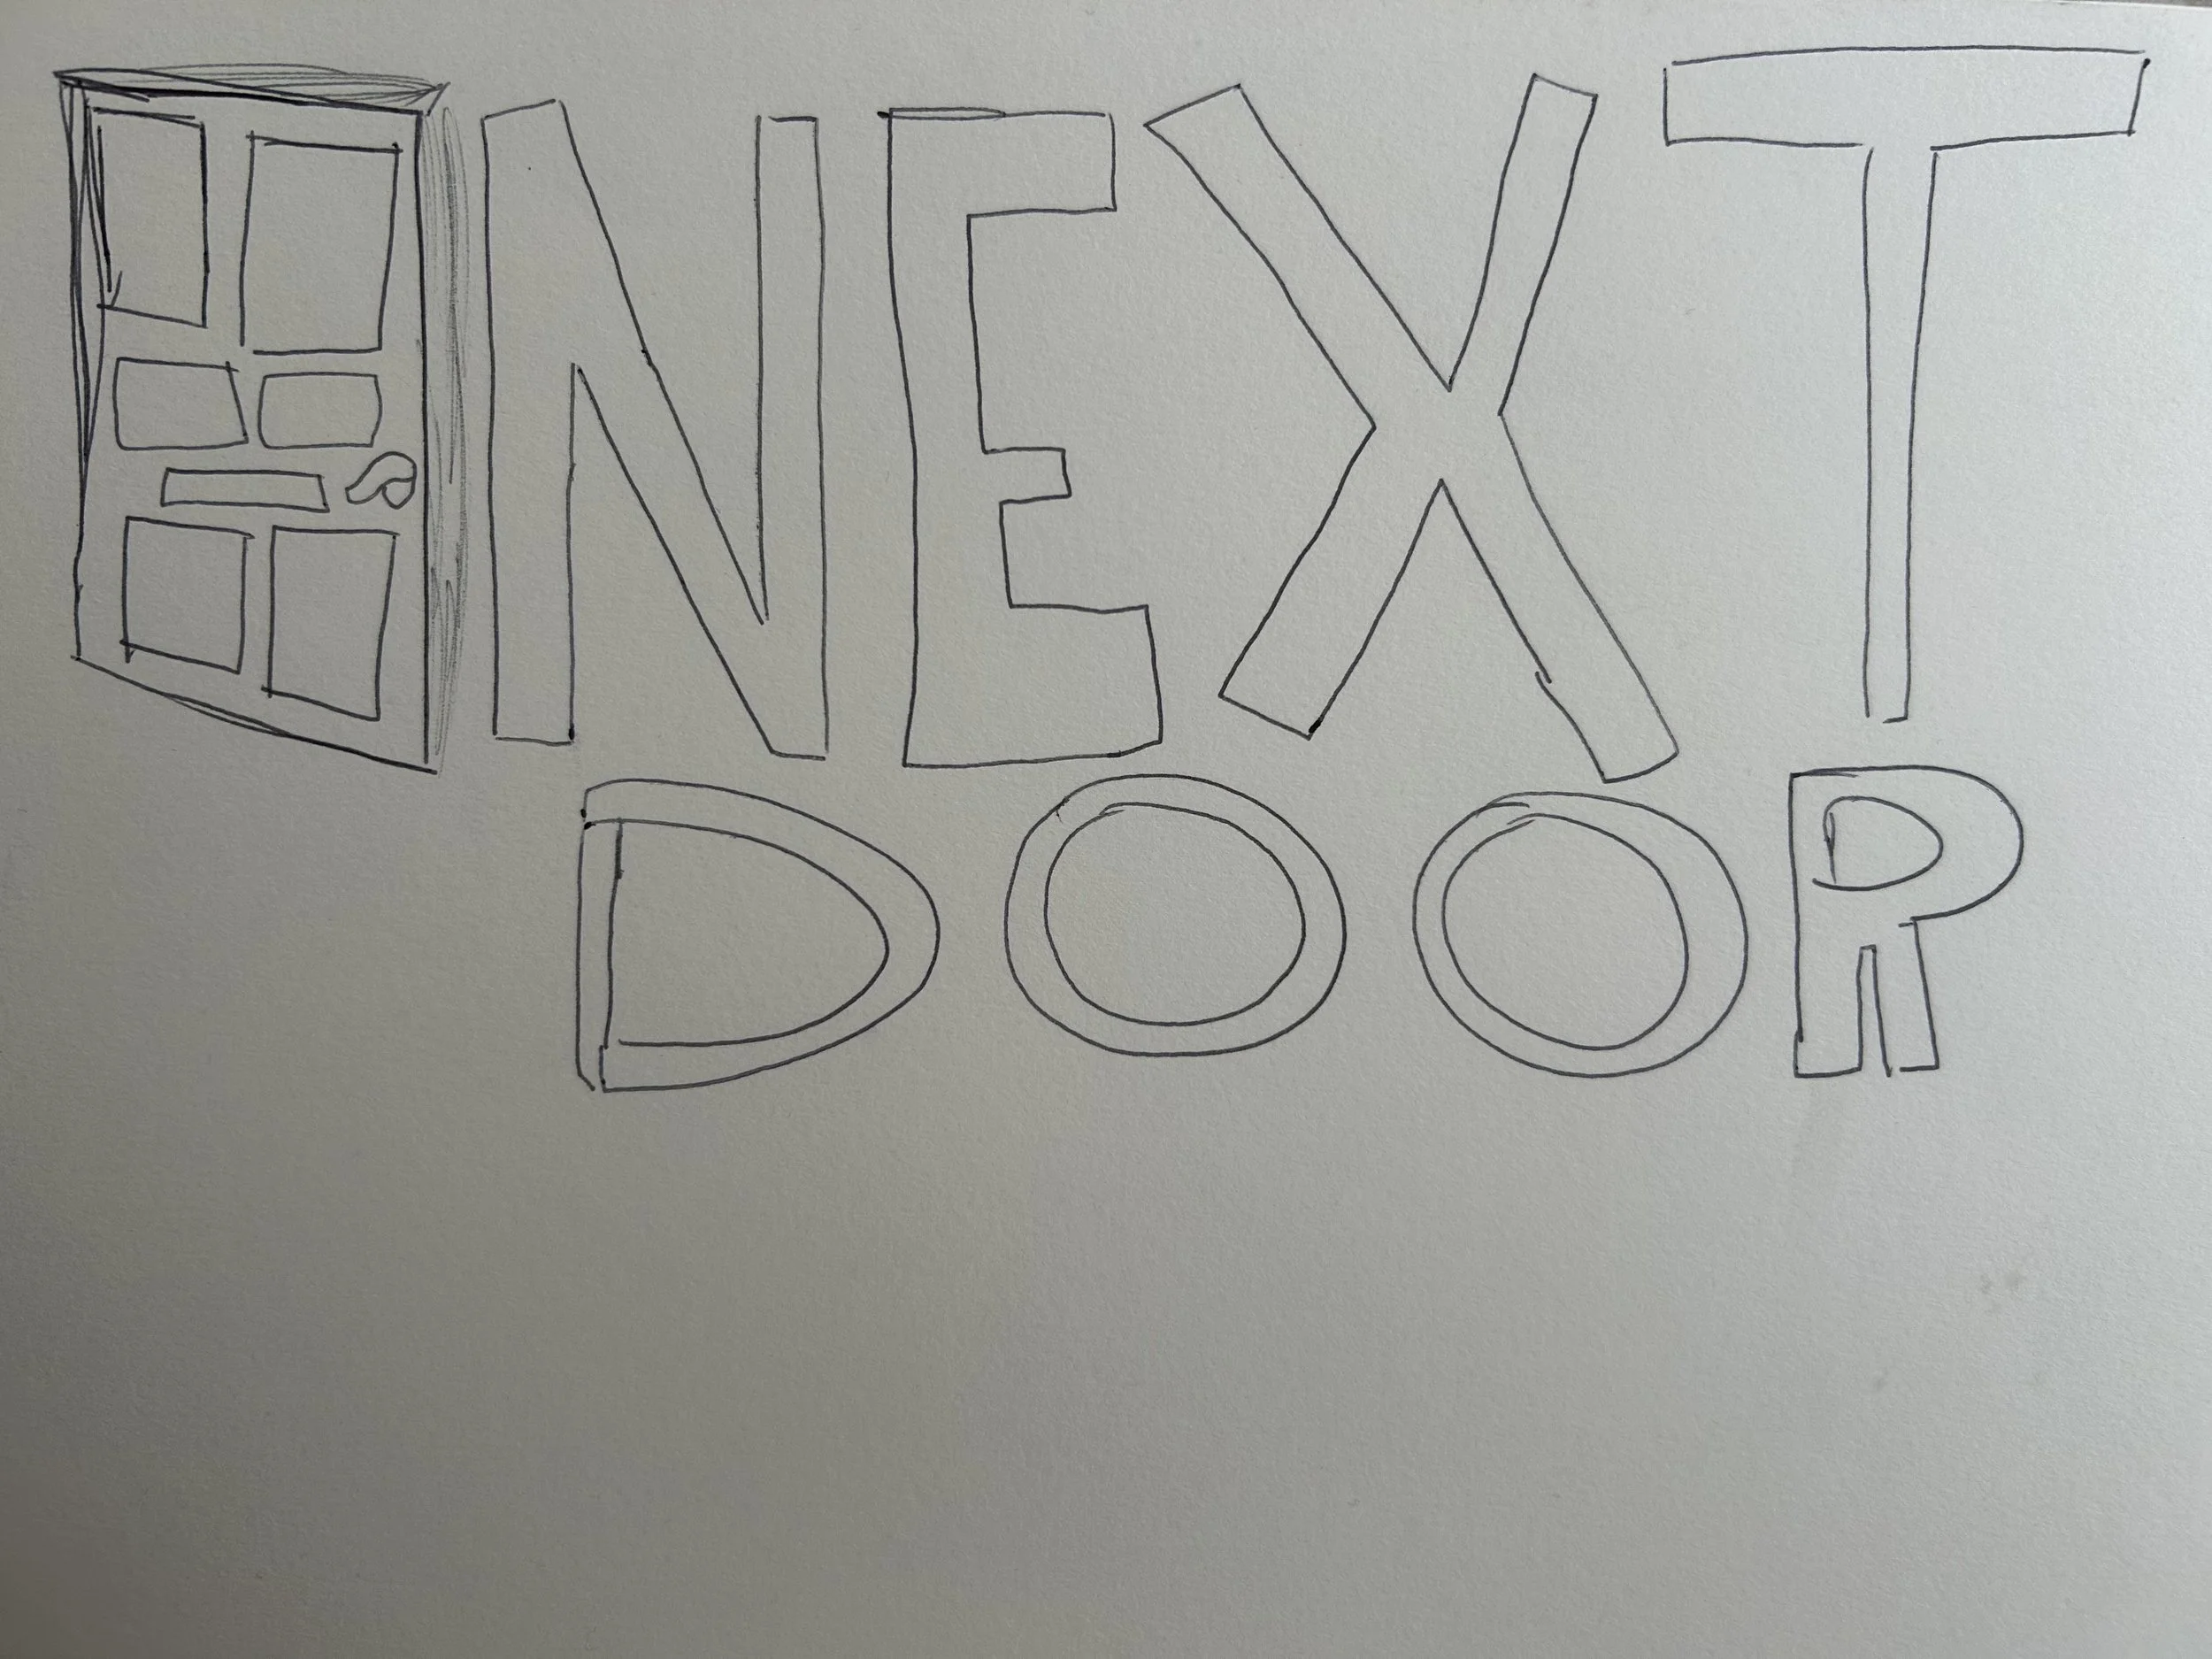 NEXT
DOOR